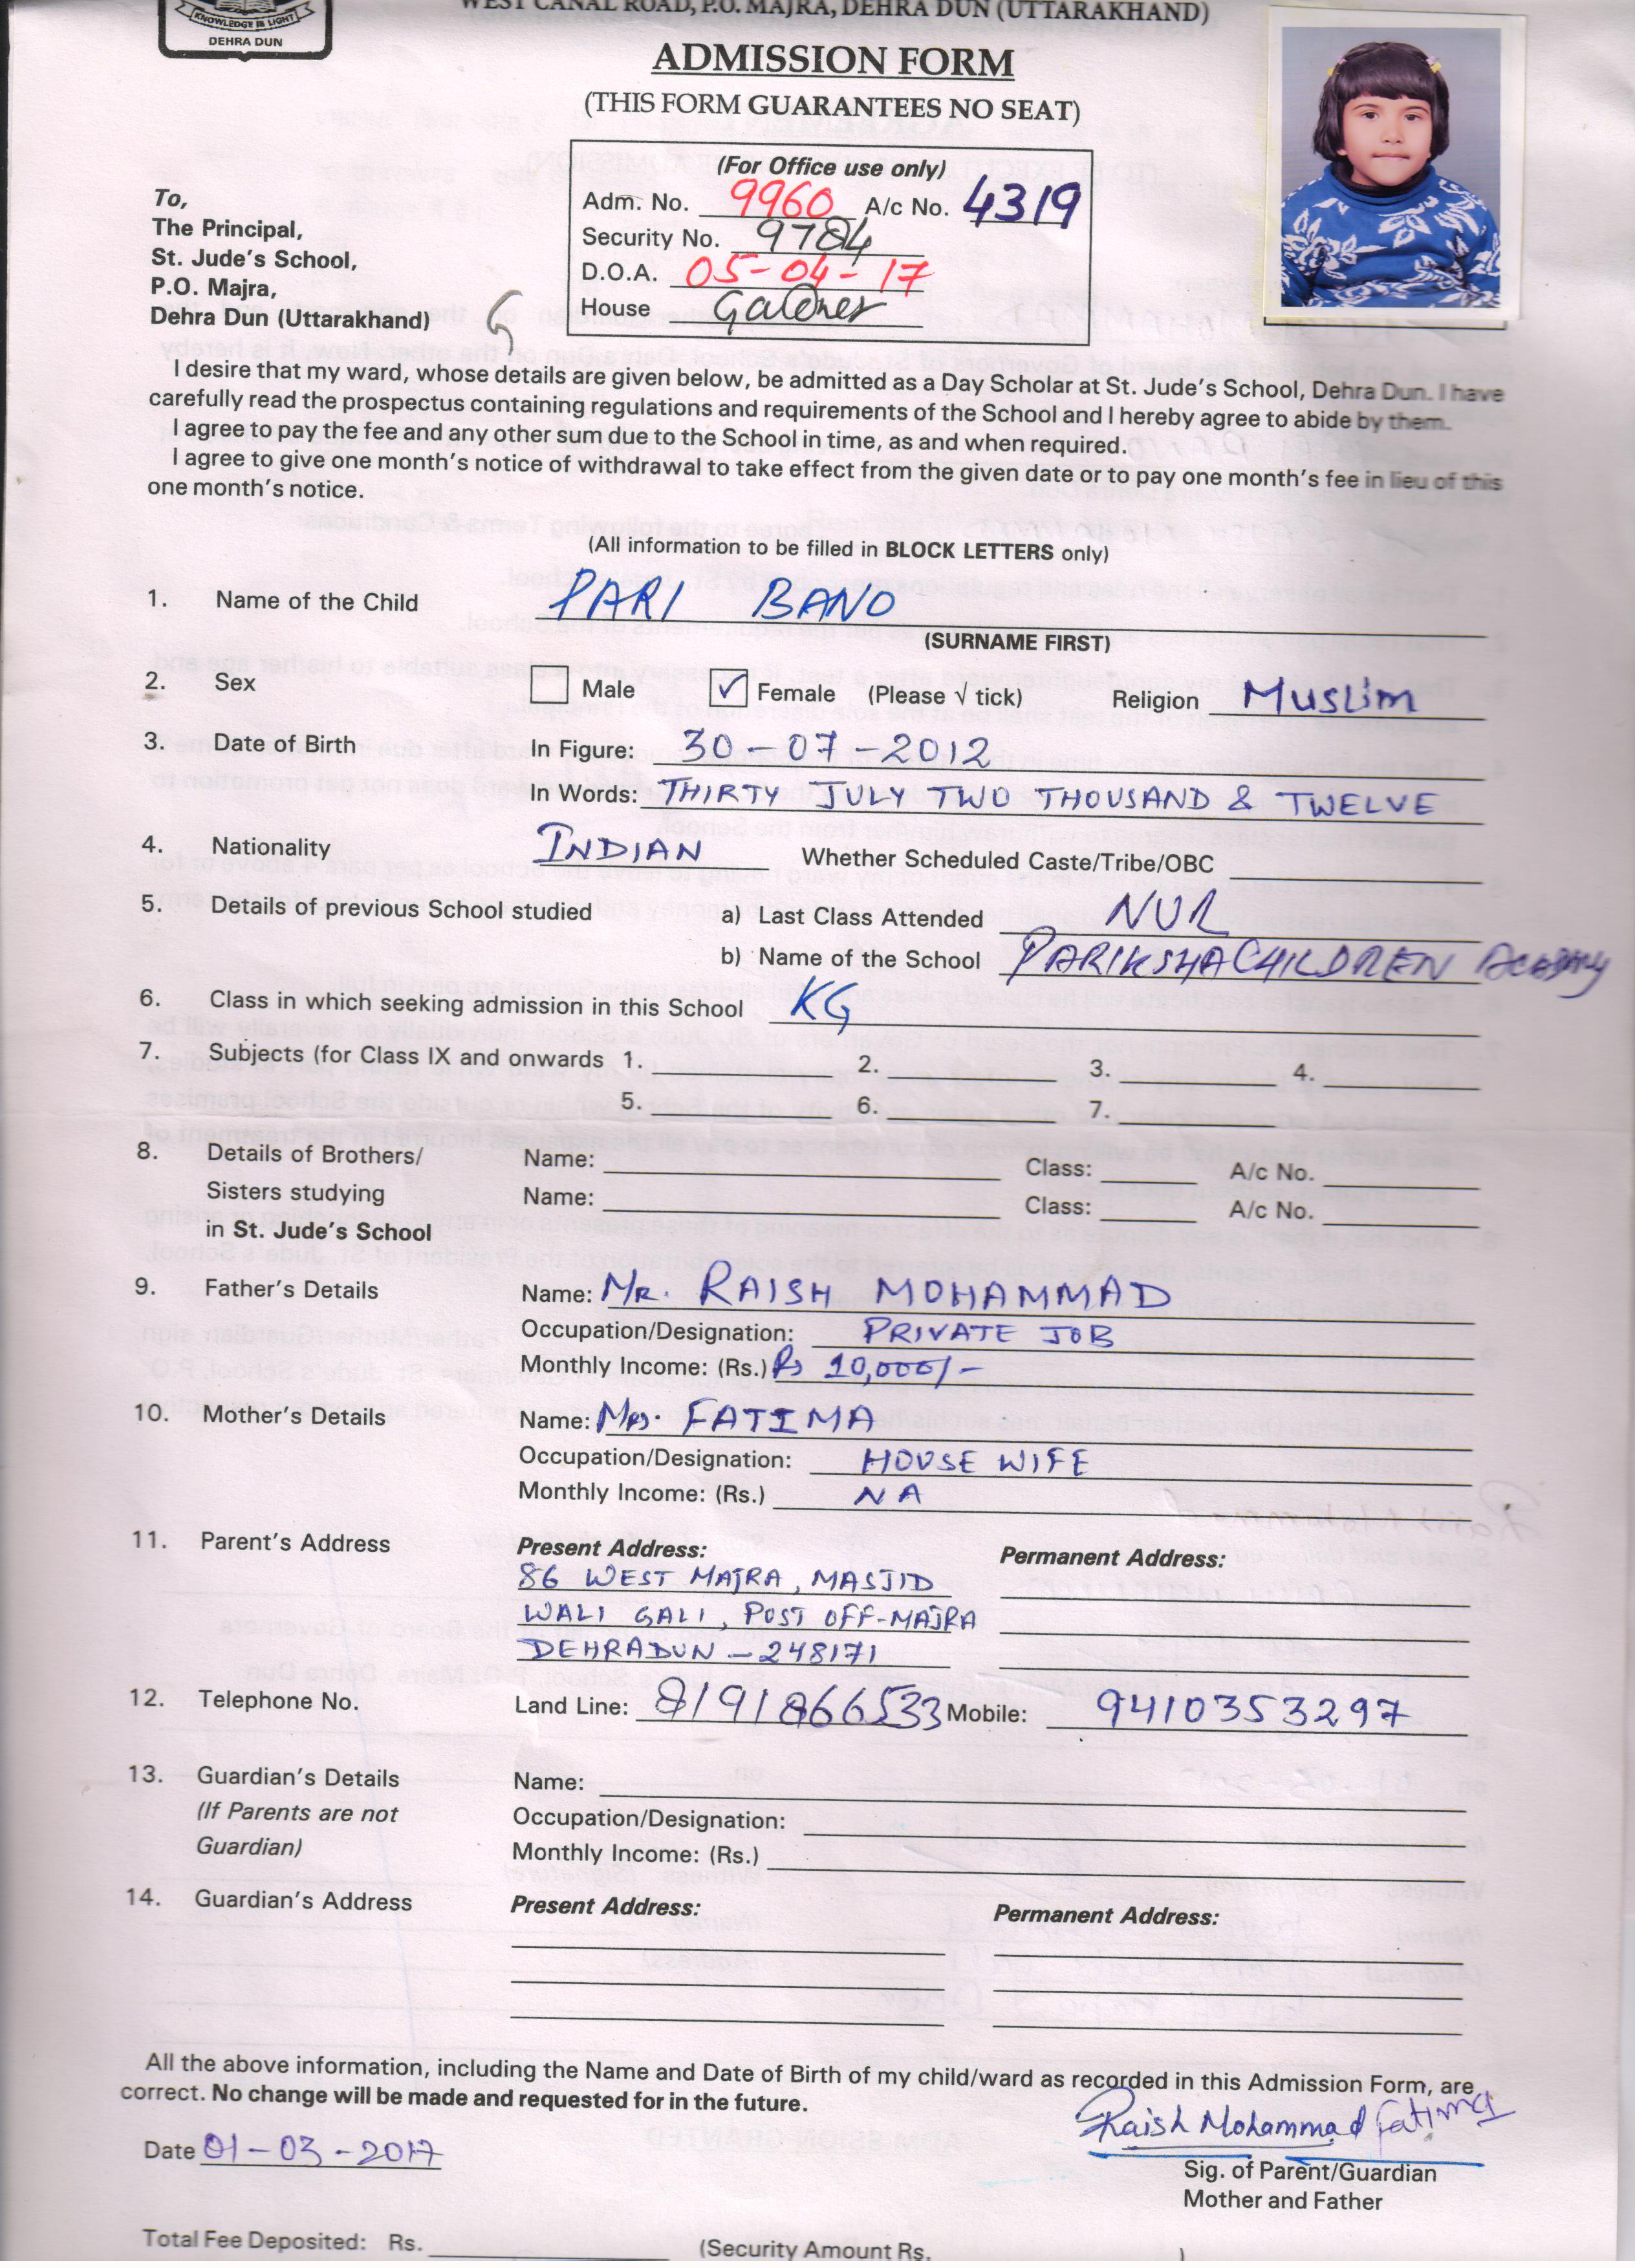 KNOWLEDGE IS LIGHT
DEHRA DUN
WEST CANAL ROAD, P.O. MAJRA, DEHRA DUN (UTTARAKHAND)
ADMISSION FORM
(THIS FORM GUARANTEES NO SEAT)
(For Office use only)
Adm. No. 9960 A/c No. 4319
Security No. 9784
D.O.A. 05-04-17
House Gardner
To,
The Principal,
St. Jude's School,
P.O. Majra,
Dehra Dun (Uttarakhand)
I desire that my ward, whose details are given below, be admitted as a Day Scholar at St. Jude's School, Dehra Dun. I have
carefully read the prospectus containing regulations and requirements of the School and I hereby agree to abide by them.
I agree to pay the fee and any other sum due to the School in time, as and when required.
I agree to give one month's notice of withdrawal to take effect from the given date or to pay one month's fee in lieu of this
one month's notice.
(All information to be filled in BLOCK LETTERS only)
1. Name of the Child PARI BANO
(SURNAME FIRST)
2. Sex Male ✓ Female (Please √ tick) Religion MUSLIM
3. Date of Birth In Figure: 30-07-2012
In Words: THIRTY JULY TWO THOUSAND & TWELVE
4. Nationality INDIAN Whether Scheduled Caste/Tribe/OBC
5. Details of previous School studied a) Last Class Attended NUR
b) Name of the School PARIKSHA CHILDREN ACADEMY
6. Class in which seeking admission in this School KG
7. Subjects (for Class IX and onwards 1. 2. 3. 4.
5. 6. 7.
8. Details of Brothers/ Name: Class: A/c No.
Sisters studying Name: Class: A/c No.
in St. Jude's School
9. Father's Details Name: MR. RAISH MOHAMMAD
Occupation/Designation: PRIVATE JOB
Monthly Income: (Rs.) Rs 10,000/-
10. Mother's Details Name: Mrs. FATIMA
Occupation/Designation: HOUSE WIFE
Monthly Income: (Rs.) NA
11. Parent's Address Present Address: Permanent Address:
86 WEST MAJRA, MASJID
WALI GALI, POST OFF-MAJRA
DEHRADUN - 248171
12. Telephone No. Land Line: 8191866533 Mobile: 9410353297
13. Guardian's Details Name:
(If Parents are not Occupation/Designation:
Guardian) Monthly Income: (Rs.)
14. Guardian's Address Present Address: Permanent Address:
All the above information, including the Name and Date of Birth of my child/ward as recorded in this Admission Form, are
correct. No change will be made and requested for in the future.
Raish Mohammad Fatima
Date 01-03-2017
Sig. of Parent/Guardian
Mother and Father
Total Fee Deposited: Rs. (Security Amount Rs. )